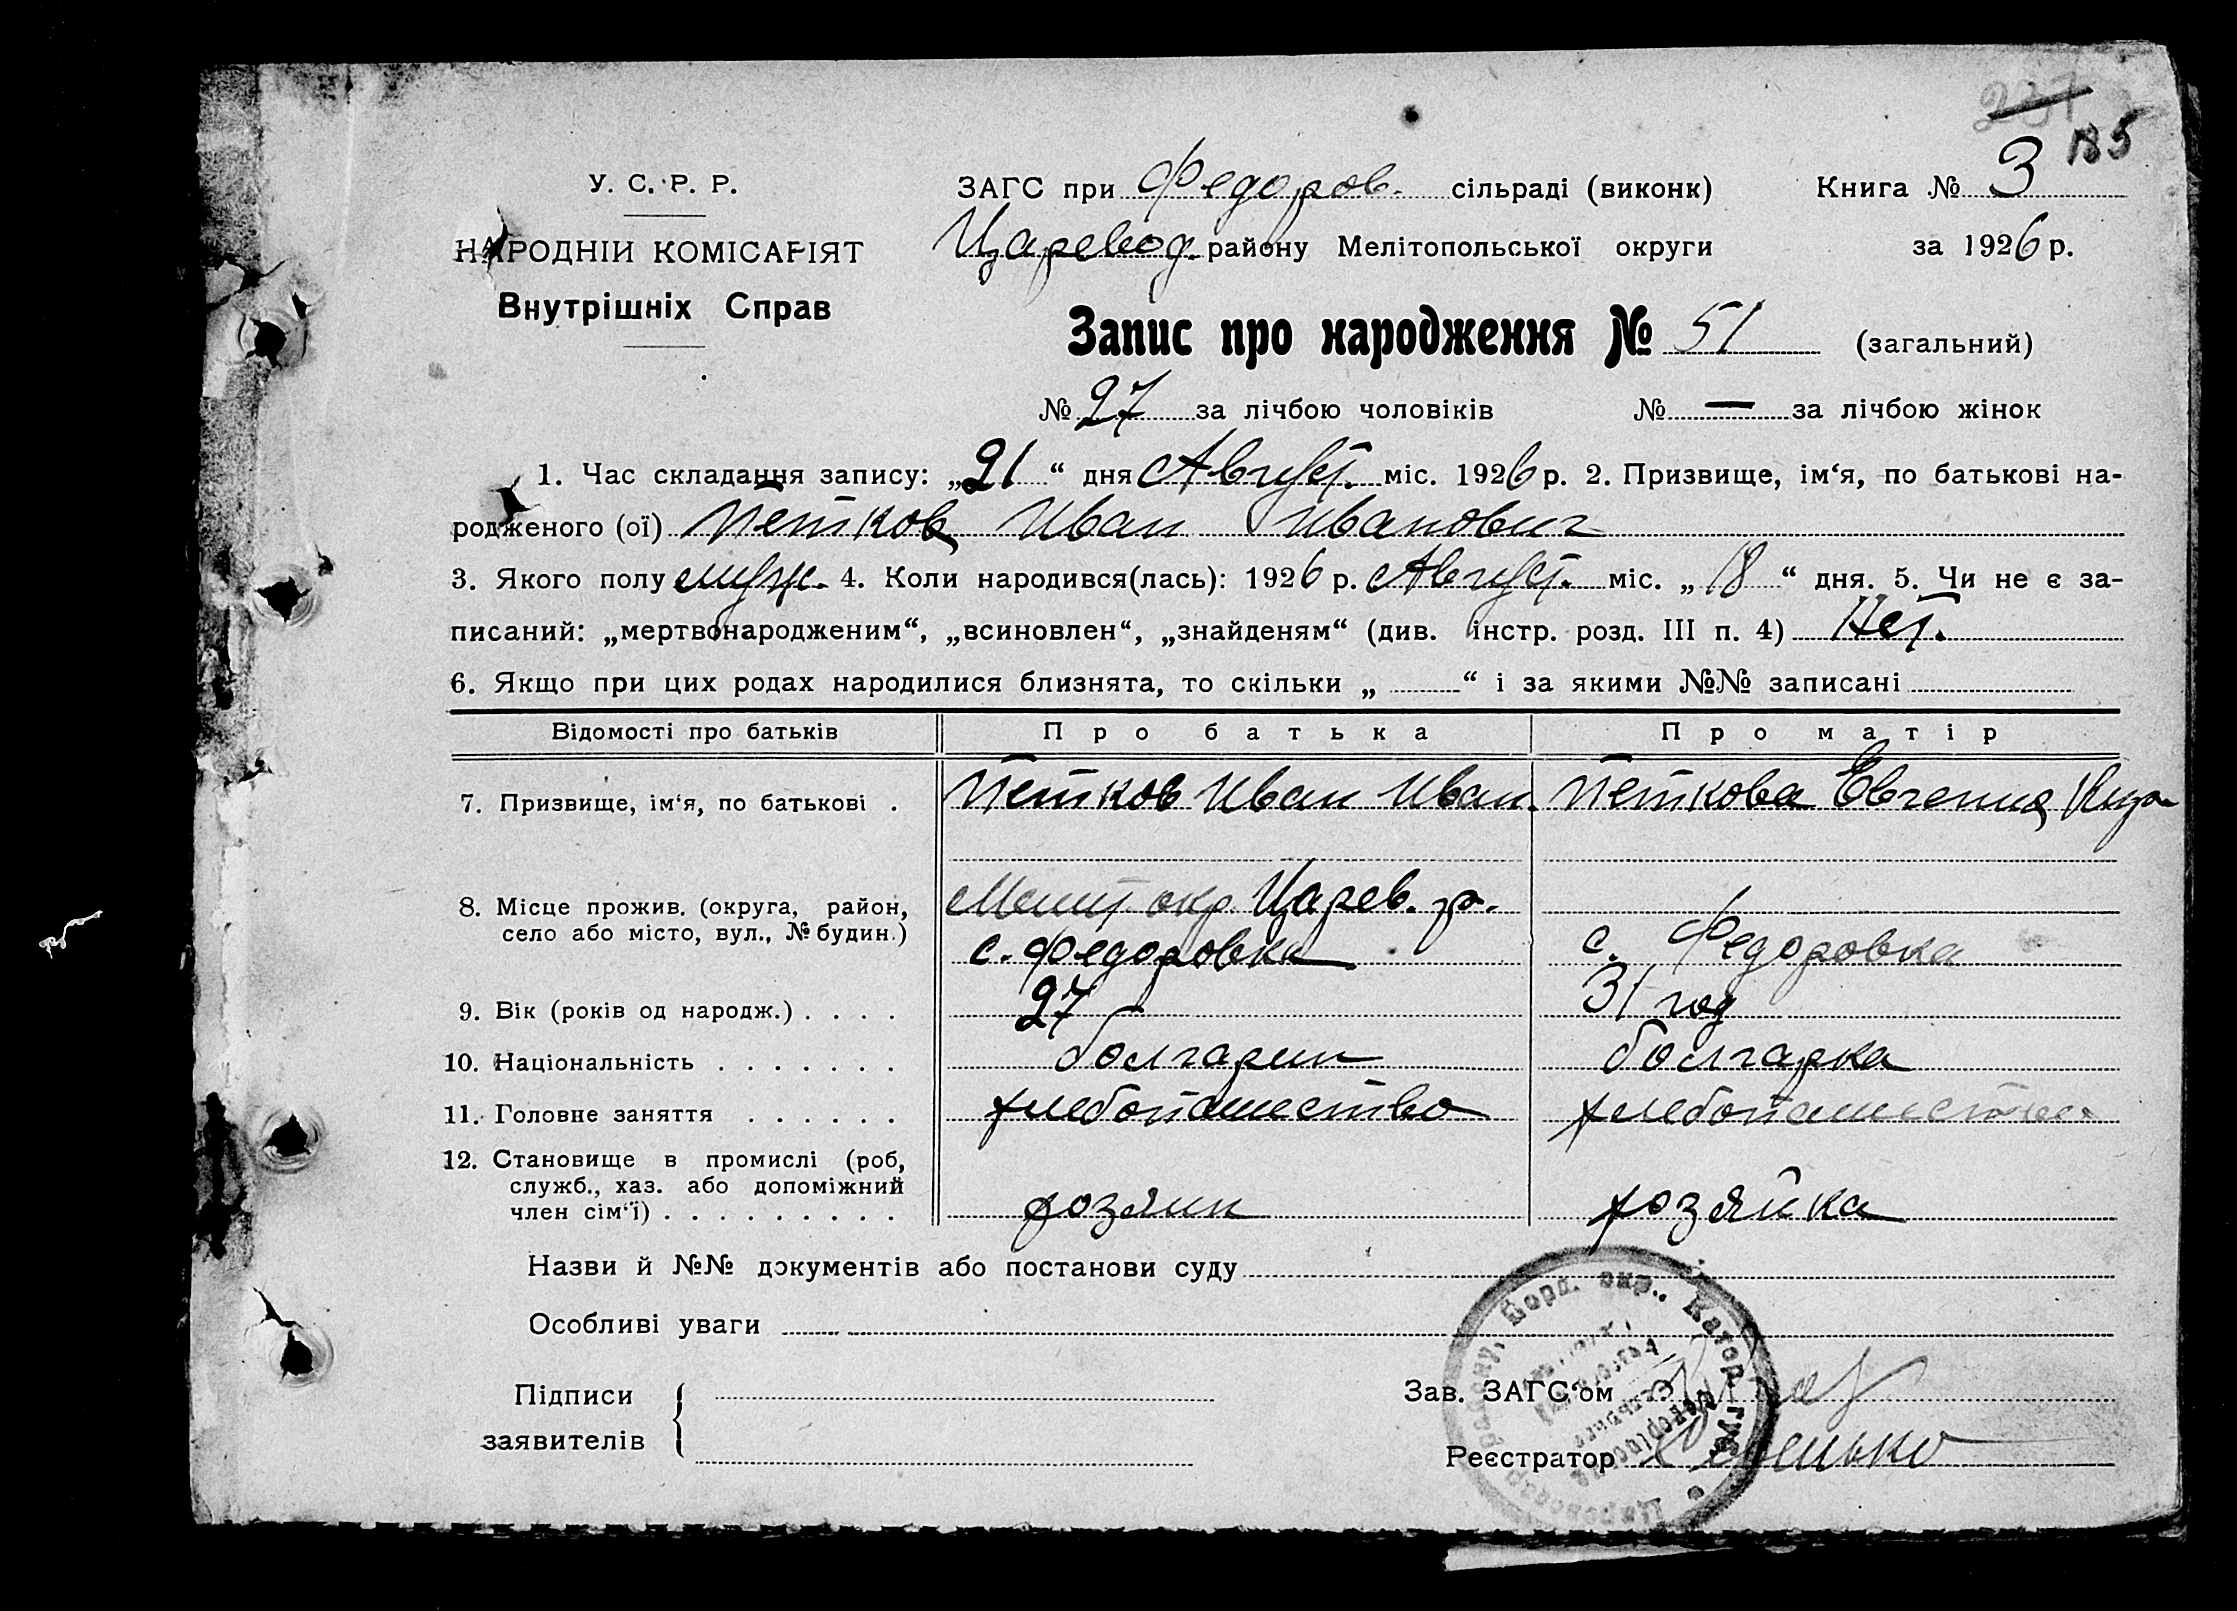 231
185
У. С. Р. Р.
ЗАГС при Федоров. сільраді (виконк)
Книга № 3
НАРОДНІЙ КОМІСАРІЯТ
Царевод. району Мелітопольської округи
за 1926 р.
Внутрішніх Справ
Запис про народження № 51 (загальний)
№ 27 за лічбою чоловіків № — за лічбою жінок
1. Час складання запису: „21“ дня Август. міс. 1926 р. 2. Призвище, ім‘я, по батькові на-
родженого (ої) Петков Иван Иванович
3. Якого полу муж. 4. Коли народився(лась): 1926 р. Август. міс. „18“ дня. 5. Чи не є за-
писаний: „мертвонародженим“, „всиновлен“, „знайденям“ (див. інстр. розд. III п. 4) Нет.
6. Якщо при цих родах народилися близнята, то скільки „ “ і за якими №№ записані
Відомості про батьків Про батька Про матір
7. Призвище, ім‘я, по батькові . Петков Иван Иван. Петкова Евгения
8. Місце прожив. (округа, район, Мелит. окр. Царев. р.
село або місто, вул., № будин.) с. Федоровка с. Федоровка
9. Вік (років од народж.) . . . . 27 31 год
10. Національність . . . . . . . болгарин болгарка
11. Головне заняття . . . . . . хлебопашество хлебопашество
12. Становище в промислі (роб,
служб., хаз. або допоміжний
член сім‘ї) . . . . . . . . . хозяин хозяйка
Назви й №№ документів або постанови суду
Особливі уваги
Підписи
заявителів
Зав. ЗАГС‘ом
Реєстратор